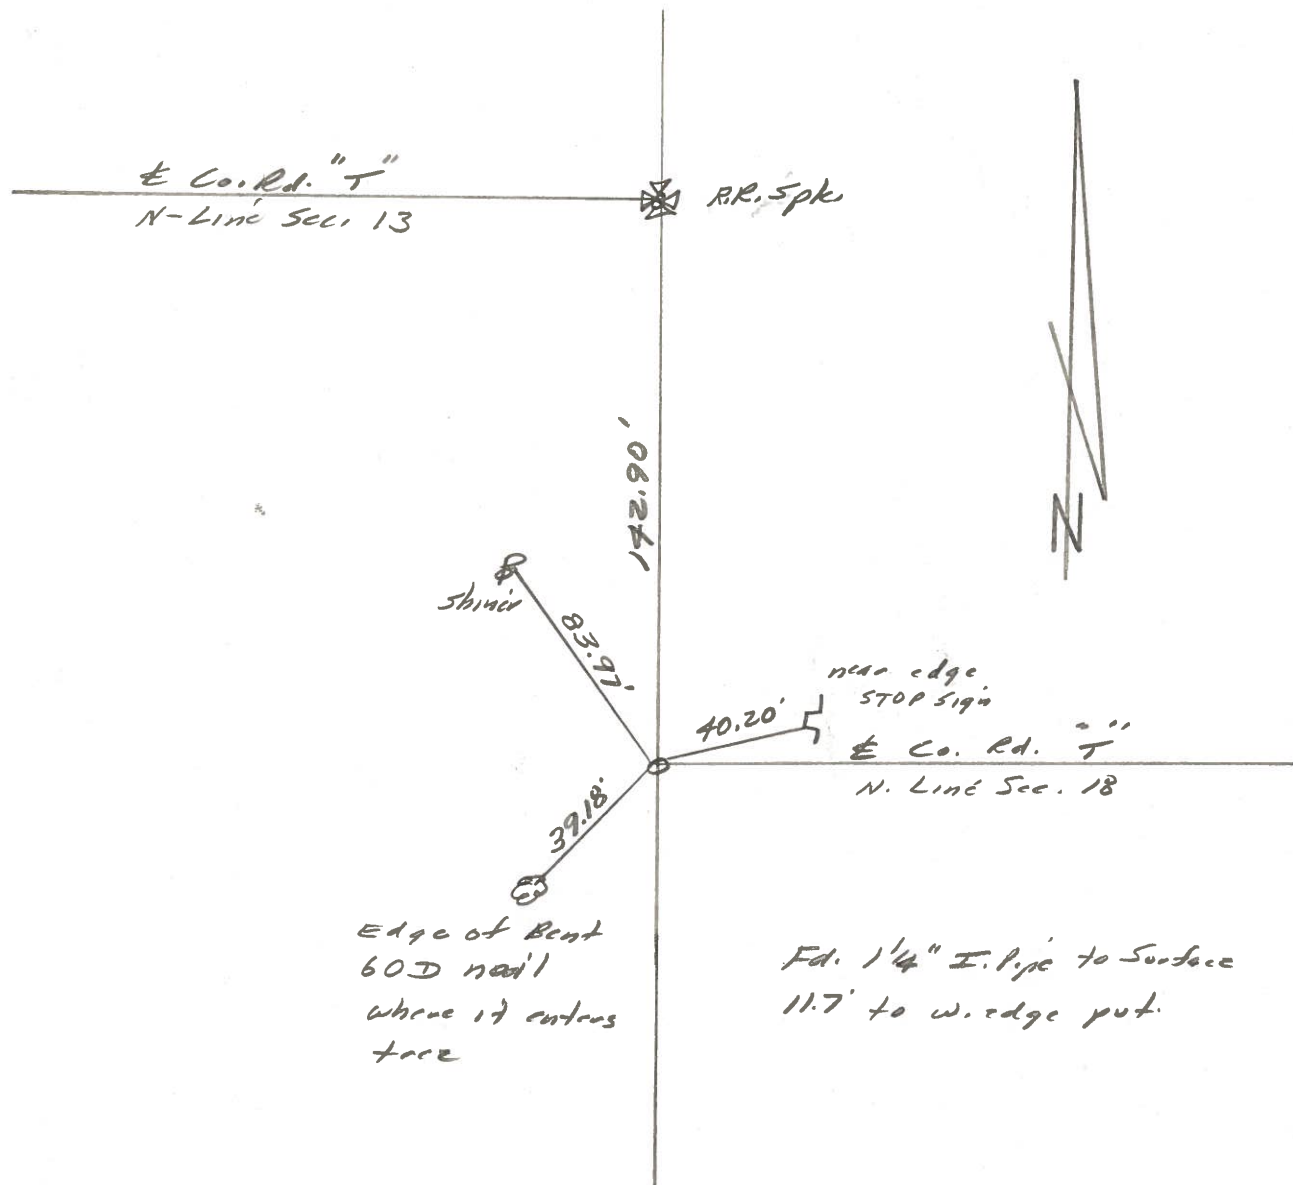 ℄ Co. Rd. "T"
N-Line Sec. 13
R.R. Spk.
142.80'
Shiner
83.97'
near edge
STOP Sign
40.20'
℄ Co. Rd. "T"
N. Line Sec. 18
39.18'
N
Edge of Bent
60D nail
where it enters
tree
Fd. 1 1/4" I. Pipe to Surface
11.7' to w. edge pvt.